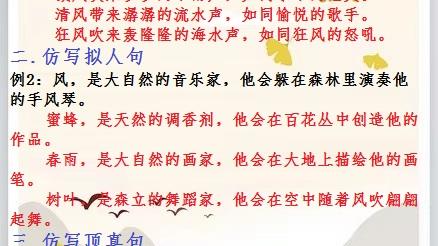 清风带来潺潺的流水声，如同愉悦的歌手。
狂风吹来轰隆隆的海水声，如同狂风的怒吼。
二.仿写拟人句
例2：风，是大自然的音乐家，他会躲在森林里演奏他
的手风琴。
蜜蜂，是天然的调香剂，他会在百花丛中创造他的
作品。
春雨，是大自然的画家，他会在大地上描绘他的画
笔。
树叶，是森立的舞蹈家，他会在空中随着风吹翩翩
起舞。
三.仿写顶真句